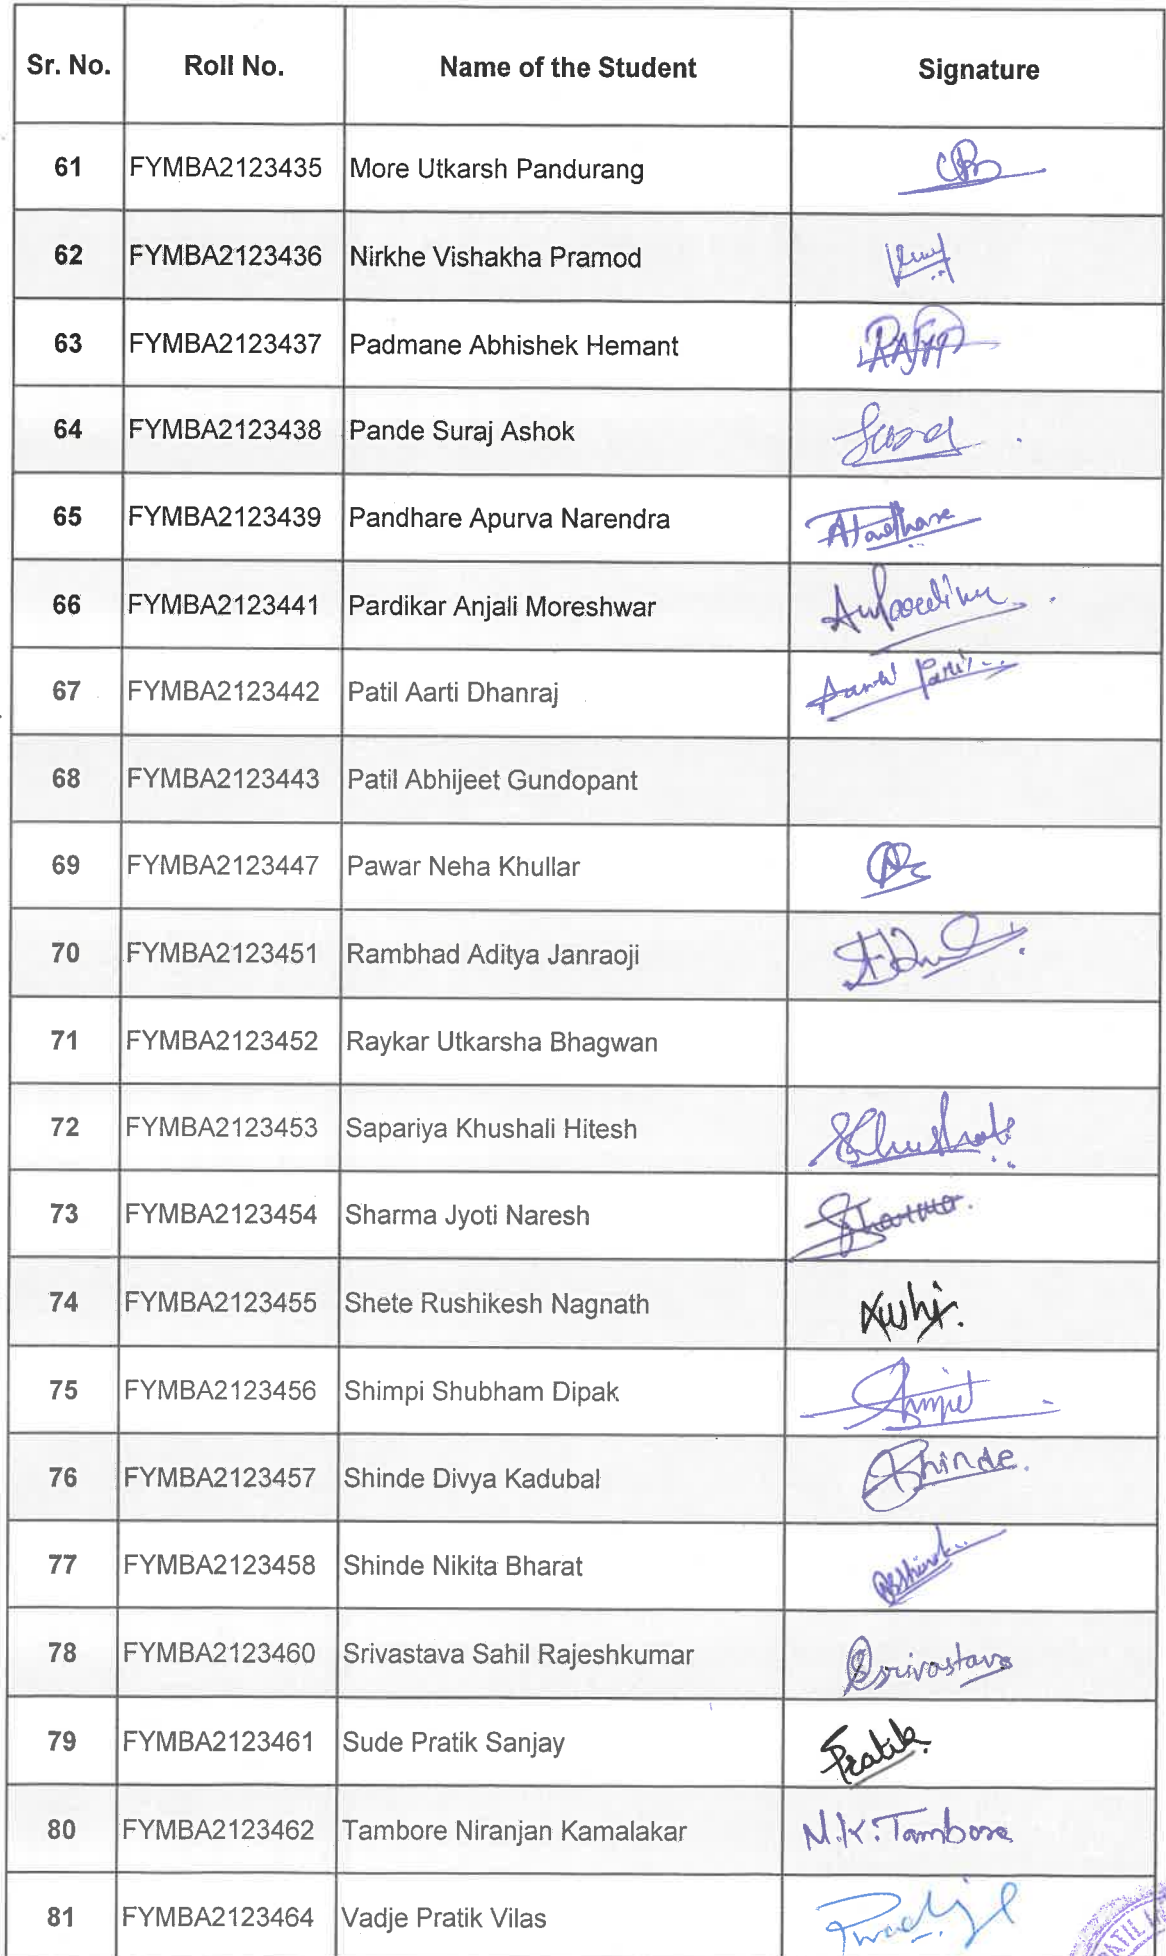 Sr. No. Roll No. Name of the Student Signature
61 FYMBA2123435 More Utkarsh Pandurang
62 FYMBA2123436 Nirkhe Vishakha Pramod
63 FYMBA2123437 Padmane Abhishek Hemant
64 FYMBA2123438 Pande Suraj Ashok
65 FYMBA2123439 Pandhare Apurva Narendra
66 FYMBA2123441 Pardikar Anjali Moreshwar
67 FYMBA2123442 Patil Aarti Dhanraj
68 FYMBA2123443 Patil Abhijeet Gundopant
69 FYMBA2123447 Pawar Neha Khullar
70 FYMBA2123451 Rambhad Aditya Janraoji
71 FYMBA2123452 Raykar Utkarsha Bhagwan
72 FYMBA2123453 Sapariya Khushali Hitesh
73 FYMBA2123454 Sharma Jyoti Naresh
74 FYMBA2123455 Shete Rushikesh Nagnath
75 FYMBA2123456 Shimpi Shubham Dipak
76 FYMBA2123457 Shinde Divya Kadubal Shinde.
77 FYMBA2123458 Shinde Nikita Bharat
78 FYMBA2123460 Srivastava Sahil Rajeshkumar Srivastava
79 FYMBA2123461 Sude Pratik Sanjay Pratik.
80 FYMBA2123462 Tambore Niranjan Kamalakar N.K.Tambore
81 FYMBA2123464 Vadje Pratik Vilas